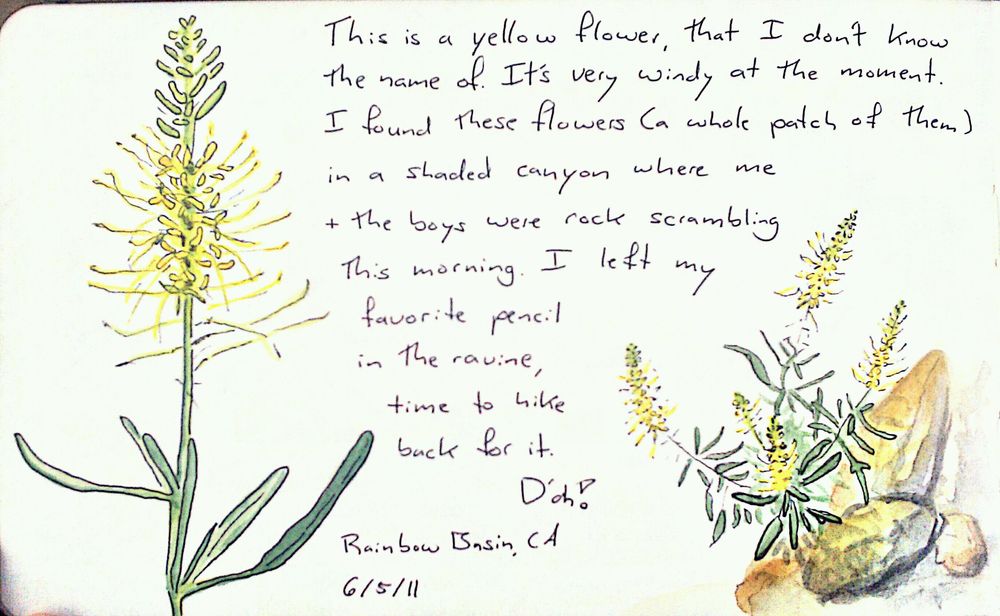 This is a yellow flower, that I don't know
the name of. It's very windy at the moment.
I found these flowers (a whole patch of them)
in a shaded canyon where me
+ the boys were rock scrambling
this morning. I left my
favorite pencil
in the ravine,
time to hike
back for it.
D'oh!
Rainbow Basin, CA
6/5/11